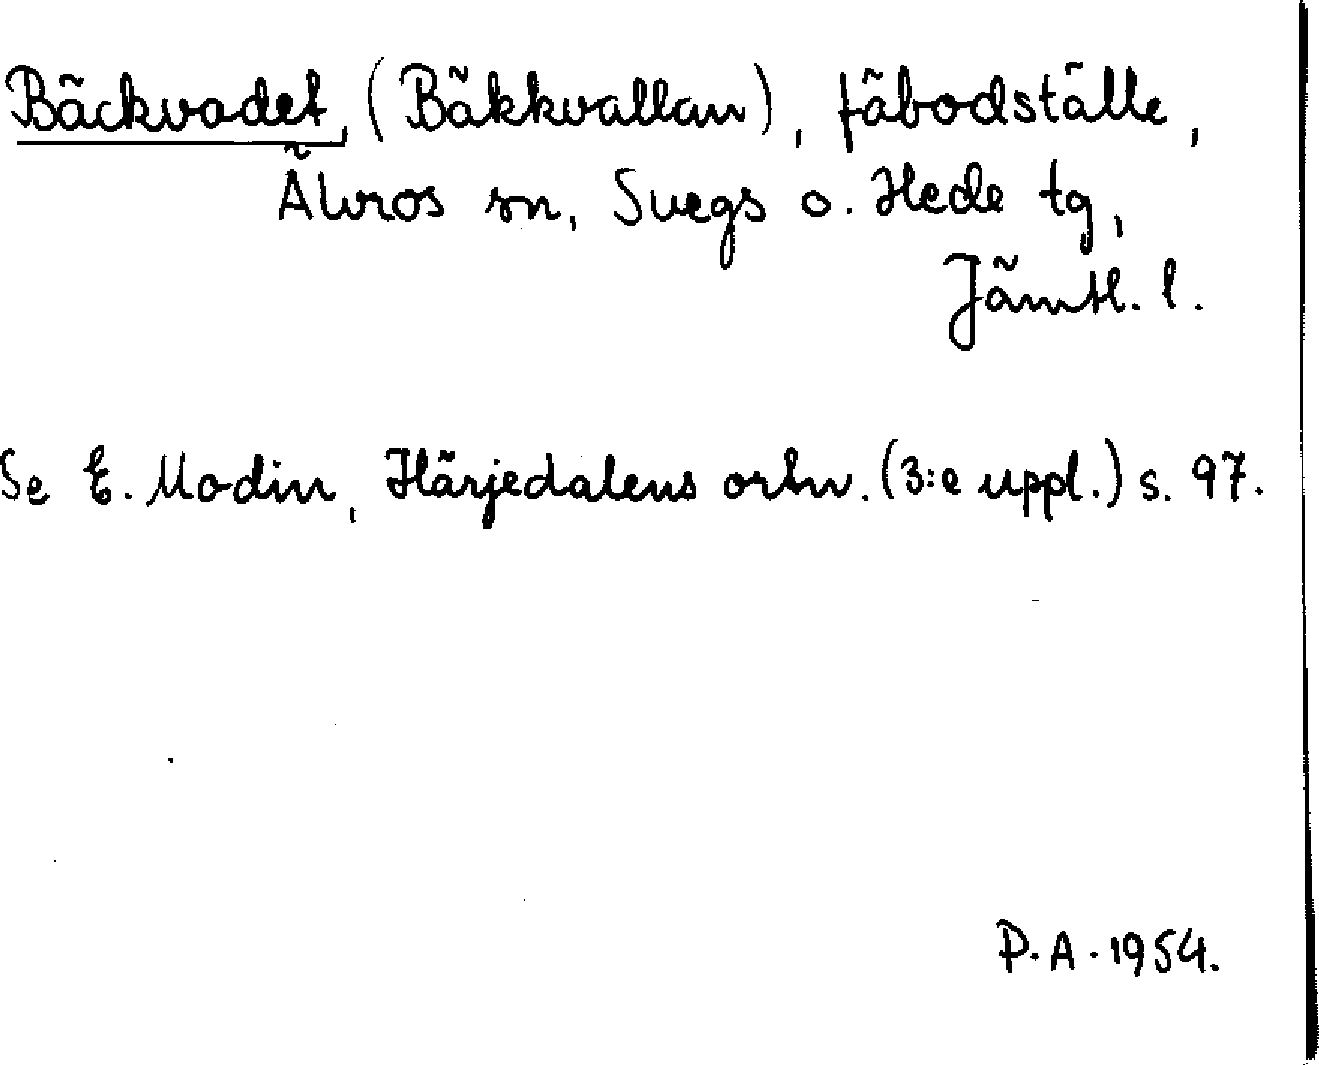 Bäckvadet, (Bäkkvallan), fäbodställe,
Älvros sn, Svegs o. Hede tg,
Jämtl. l.
Se E. Modin, Härjedalens ortn. (3:e uppl.) s. 97.
P.A. 1954.